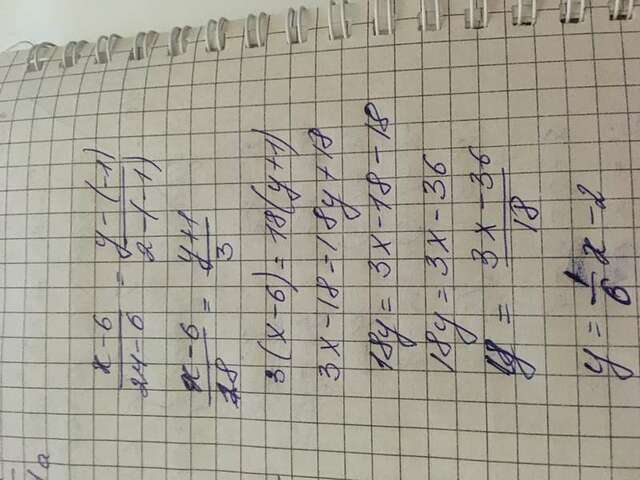 1a
x-6/24-6 = y-(-1)/2-(-1)
x-6/18 = y+1/3
3(x-6)=18(y+1)
3x-18=18y+18
18y=3x-18-18
18y=3x-36
y = 3x-36/18
y = 1/6 x-2